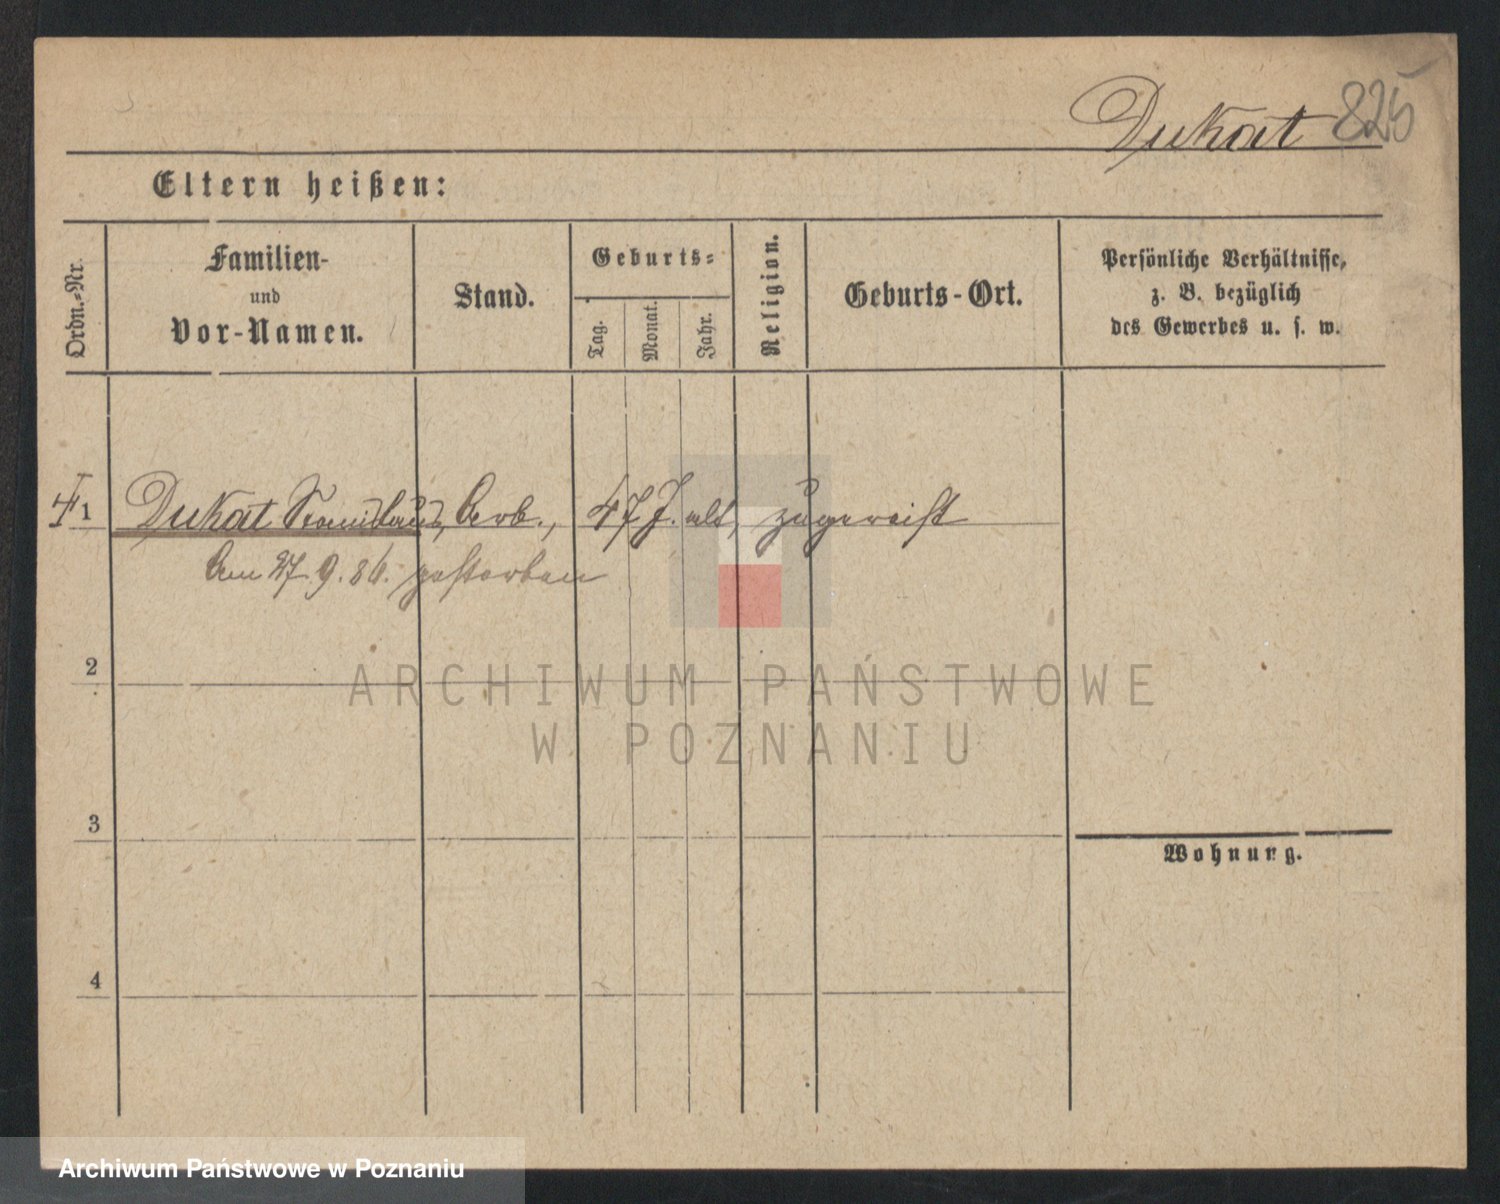 Dukat 825
Eltern heißen:
Ordn.=Nr.
Familien-
und
Vor-Namen.
Stand.
Geburts=
Tag.
Monat.
Jahr.
Religion.
Geburts-Ort.
Persönliche Verhältnisse,
z. B. bezüglich
des Gewerbes u. s. w.
1 Dukat Stanislaus, Arb., 47 J. alt, zugereist
Am 27.9.86. gestorben
2
ARCHIWUM PAŃSTWOWE
W POZNANIU
3
Wohnung.
4
Archiwum Państwowe w Poznaniu